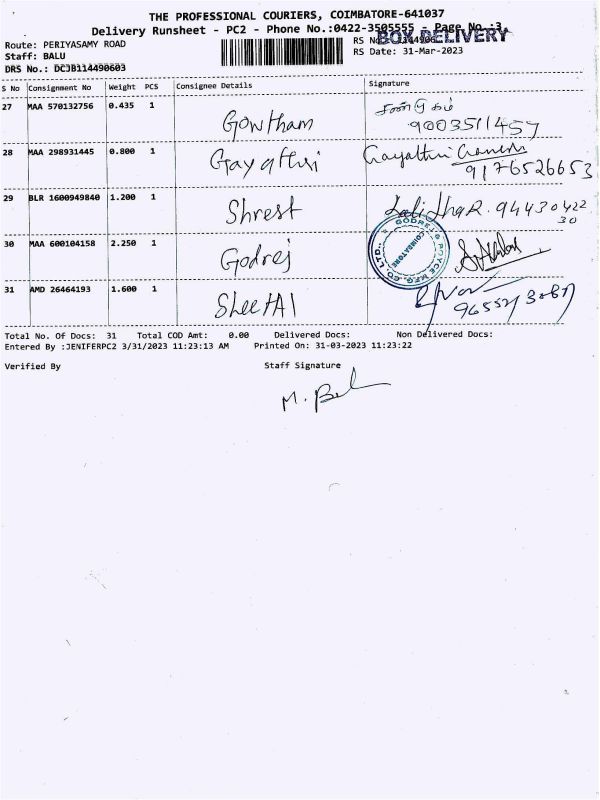 THE PROFESSIONAL COURIERS, COIMBATORE-641037
Delivery Runsheet - PC2 - Phone No.:0422-3505555 - Page No.:3
BOX DELIVERY
Route: PERIYASAMY ROAD
RS No.:
Staff: BALU
RS Date: 31-Mar-2023
DRS No.: DCJB114490603
S No Consignment No Weight PCS Consignee Details Signature
27 MAA 570132756 0.435 1 Gowtham
9003511457
28 MAA 298931445 0.800 1 Gayathri Gayathri
9176526653
29 BLR 1600949840 1.200 1 Shrest Lalitha R. 94430422
30
30 MAA 600104158 2.250 1 Godrej
GODREJ & BOYCE MFG. CO. LTD.
COIMBATORE
31 AMD 26464193 1.600 1 SheetAl
Total No. Of Docs: 31 Total COD Amt: 0.00 Delivered Docs: Non Delivered Docs:
Entered By :JENIFERPC2 3/31/2023 11:23:13 AM Printed On: 31-03-2023 11:23:22
Verified By Staff Signature
M. Bal